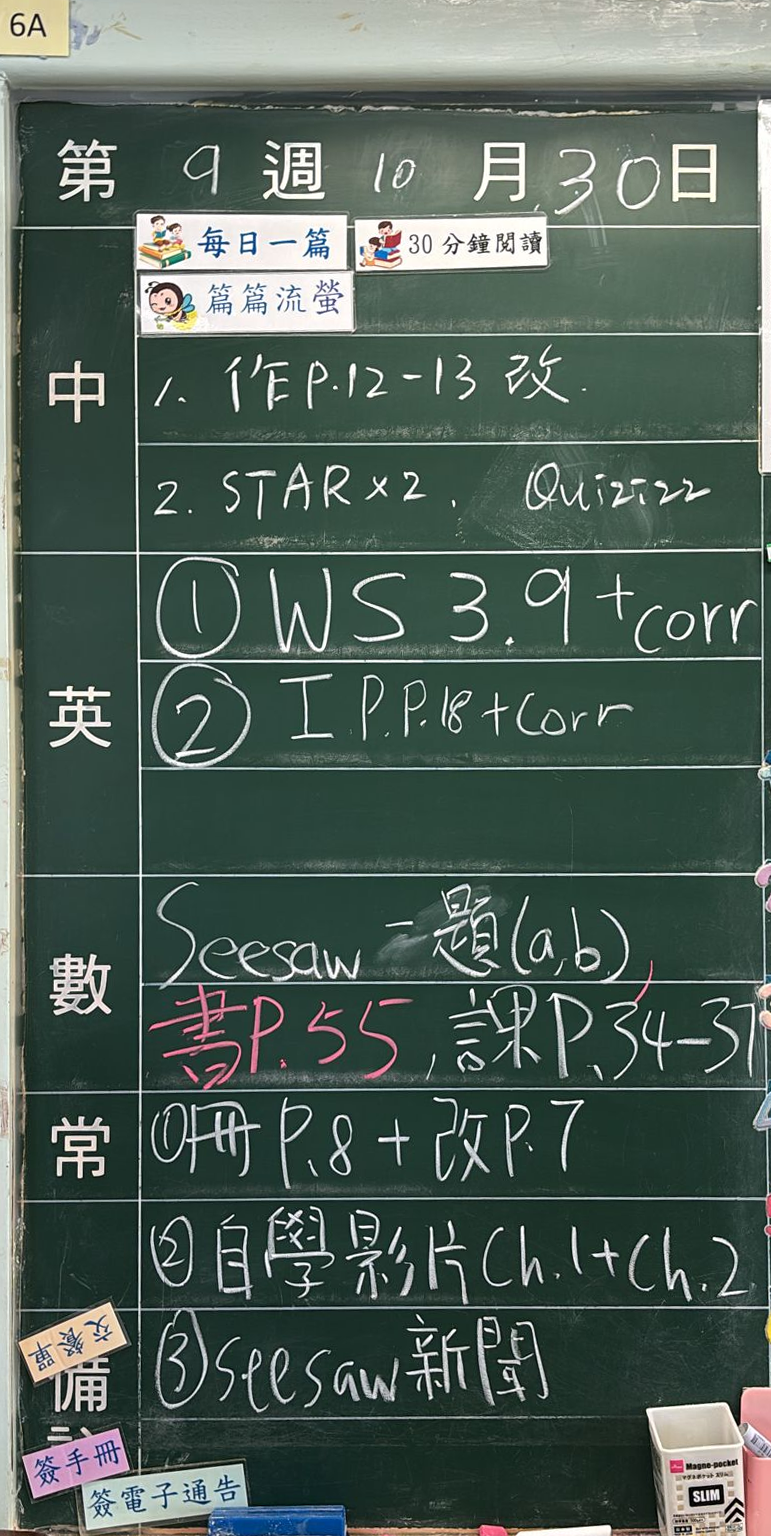 6A
第 9 週 10 月 30 日
每日一篇 30 分鐘閱讀
篇篇流螢
中
1. 作 P.12-13 改.
2. STAR x 2. Quizizz
英
① WS 3.9 + corr
② I.P.P.18 + corr
數
Seesaw 一題(a,b),
書P.55, 課P.34-37
常
①冊 P.8 + 改P.7
②自學影片 Ch.1+Ch.2
③seesaw 新聞
交餐單
備
簽手冊
簽電子通告
Magne-pocket
SLIM